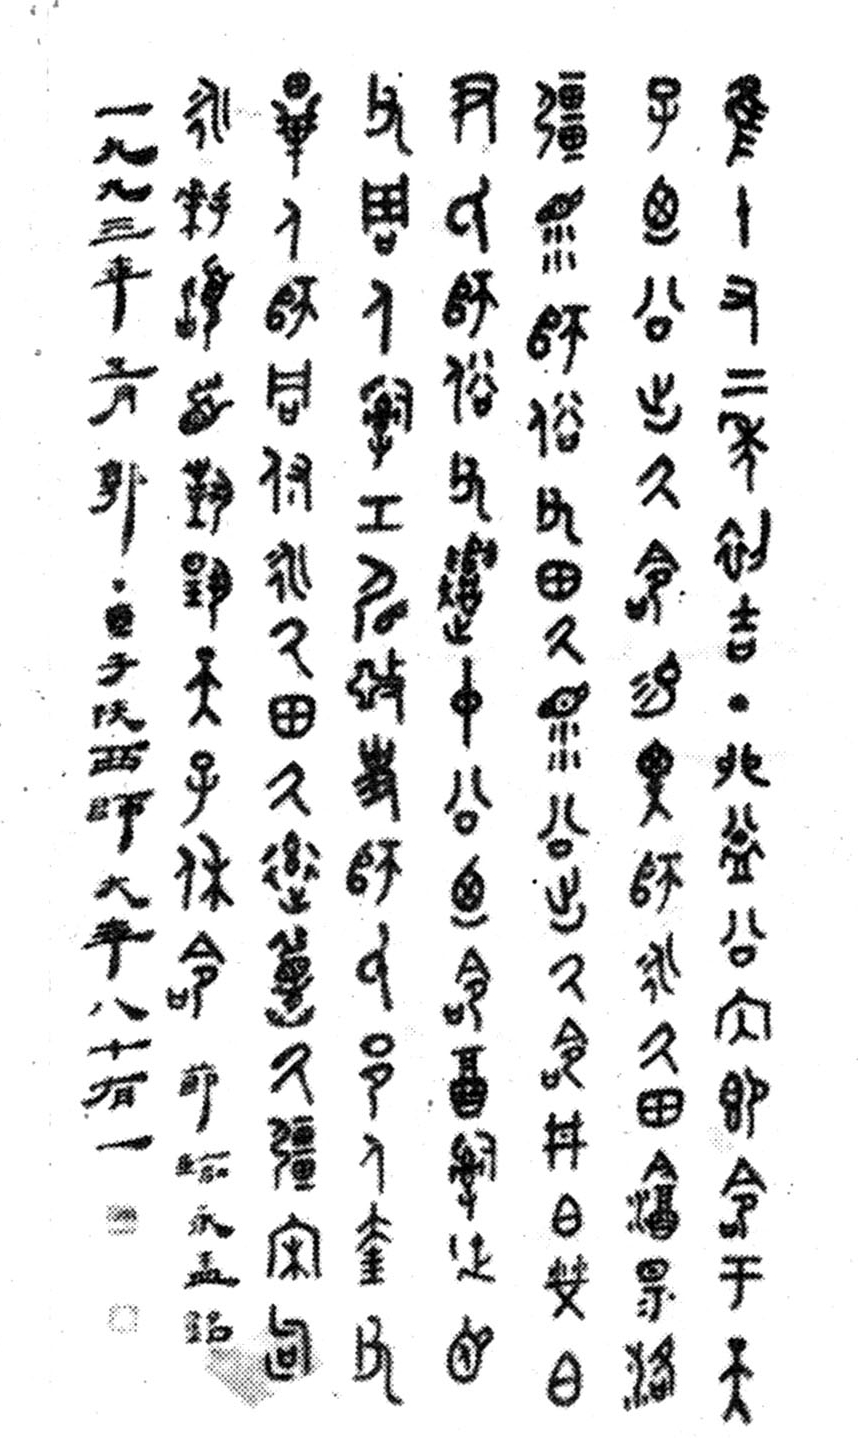 隹十又二年初吉丁卯益公內即命于天
子廼公出厥命易畀師永厥田陰昜洛
疆眔師俗父田厥眔公出厥命井白焚白
尹氏師俗父遣中公廼命酉𤔲徒圅
父周人𤔲工眉敀史師氏邑人奎父
畢人師同付永厥田厥率履厥疆宋句
永拜稽首對揚天子休命 節臨永盂銘
一九九三年月郭子直于陝西師大年八十有一